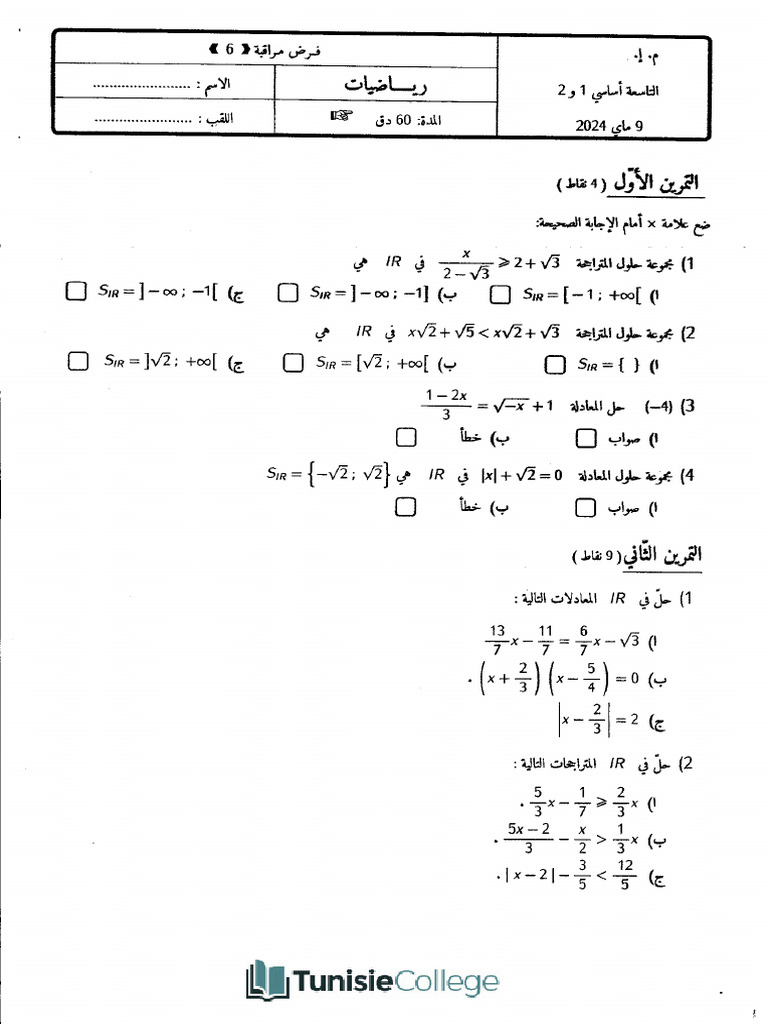 م. إ.
التاسعة أساسي 1 و 2
9 ماي 2024
فرض مراقبة « 6 »
رياضيات
الاسم : ........................
المدة: 60 دق
اللقب : ........................
التمرين الأوّل ( 4 نقاط )
ضع علامة × أمام الإجابة الصحيحة:
1) مجموعة حلول المتراجحة x/(2 − √3) ⩾ 2 + √3 في IR هي
ا) S_IR = [ − 1 ; +∞[ ☐ ب) S_IR = ] − ∞ ; −1] ☐ ج) S_IR = ] − ∞ ; −1[ ☐
2) مجموعة حلول المتراجحة x√2 + √5 < x√2 + √3 في IR هي
ا) S_IR = { } ☐ ب) S_IR = [√2 ; +∞[ ☐ ج) S_IR = ]√2 ; +∞[ ☐
3) (−4) حل المعادلة (1 − 2x)/3 = √−x + 1
ا) صواب ☐ ب) خطأ ☐
4) مجموعة حلول المعادلة |x| + √2 = 0 في IR هي S_IR = {−√2 ; √2}
ا) صواب ☐ ب) خطأ ☐
التمرين الثّاني ( 9 نقاط )
1) حلّ في IR المعادلات التالية :
ا) 13/7 x − 11/7 = 6/7 x − √3
ب) (x + 2/3) (x − 5/4) = 0 .
ج) |x − 2/3| = 2
2) حلّ في IR المتراجحات التالية :
ا) 5/3 x − 1/7 ⩾ 2/3 x .
ب) (5x − 2)/3 − x/2 > 1/3 x .
ج) | x − 2 | − 3/5 < 12/5 .
TunisieCollege